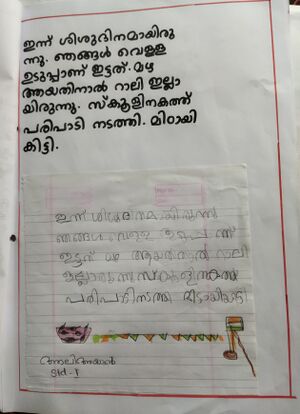 ഇന്ന് ശിശുദിനമായിരു
ന്നു. ഞങ്ങൾ വെള്ള
ഉടുപ്പാണ് ഇട്ടത്. മഴ
ആയതിനാൽ റാലി ഇല്ലാ
യിരുന്നു. സ്കൂളിനകത്ത്
പരിപാടി നടത്തി. മിഠായി
കിട്ടി.
ഇന്ന് ശിശുദിനമായിരുന്നു
ഞങ്ങൾ വെള്ള
ഇട്ടത് മഴ ആയതിനാൽ റാലി
ഇല്ലാരുന്നു സ്കൂളിനകത്ത്
പരിപാടി നടത്തി മിട്ടായി കിട്ടി
Std - 1